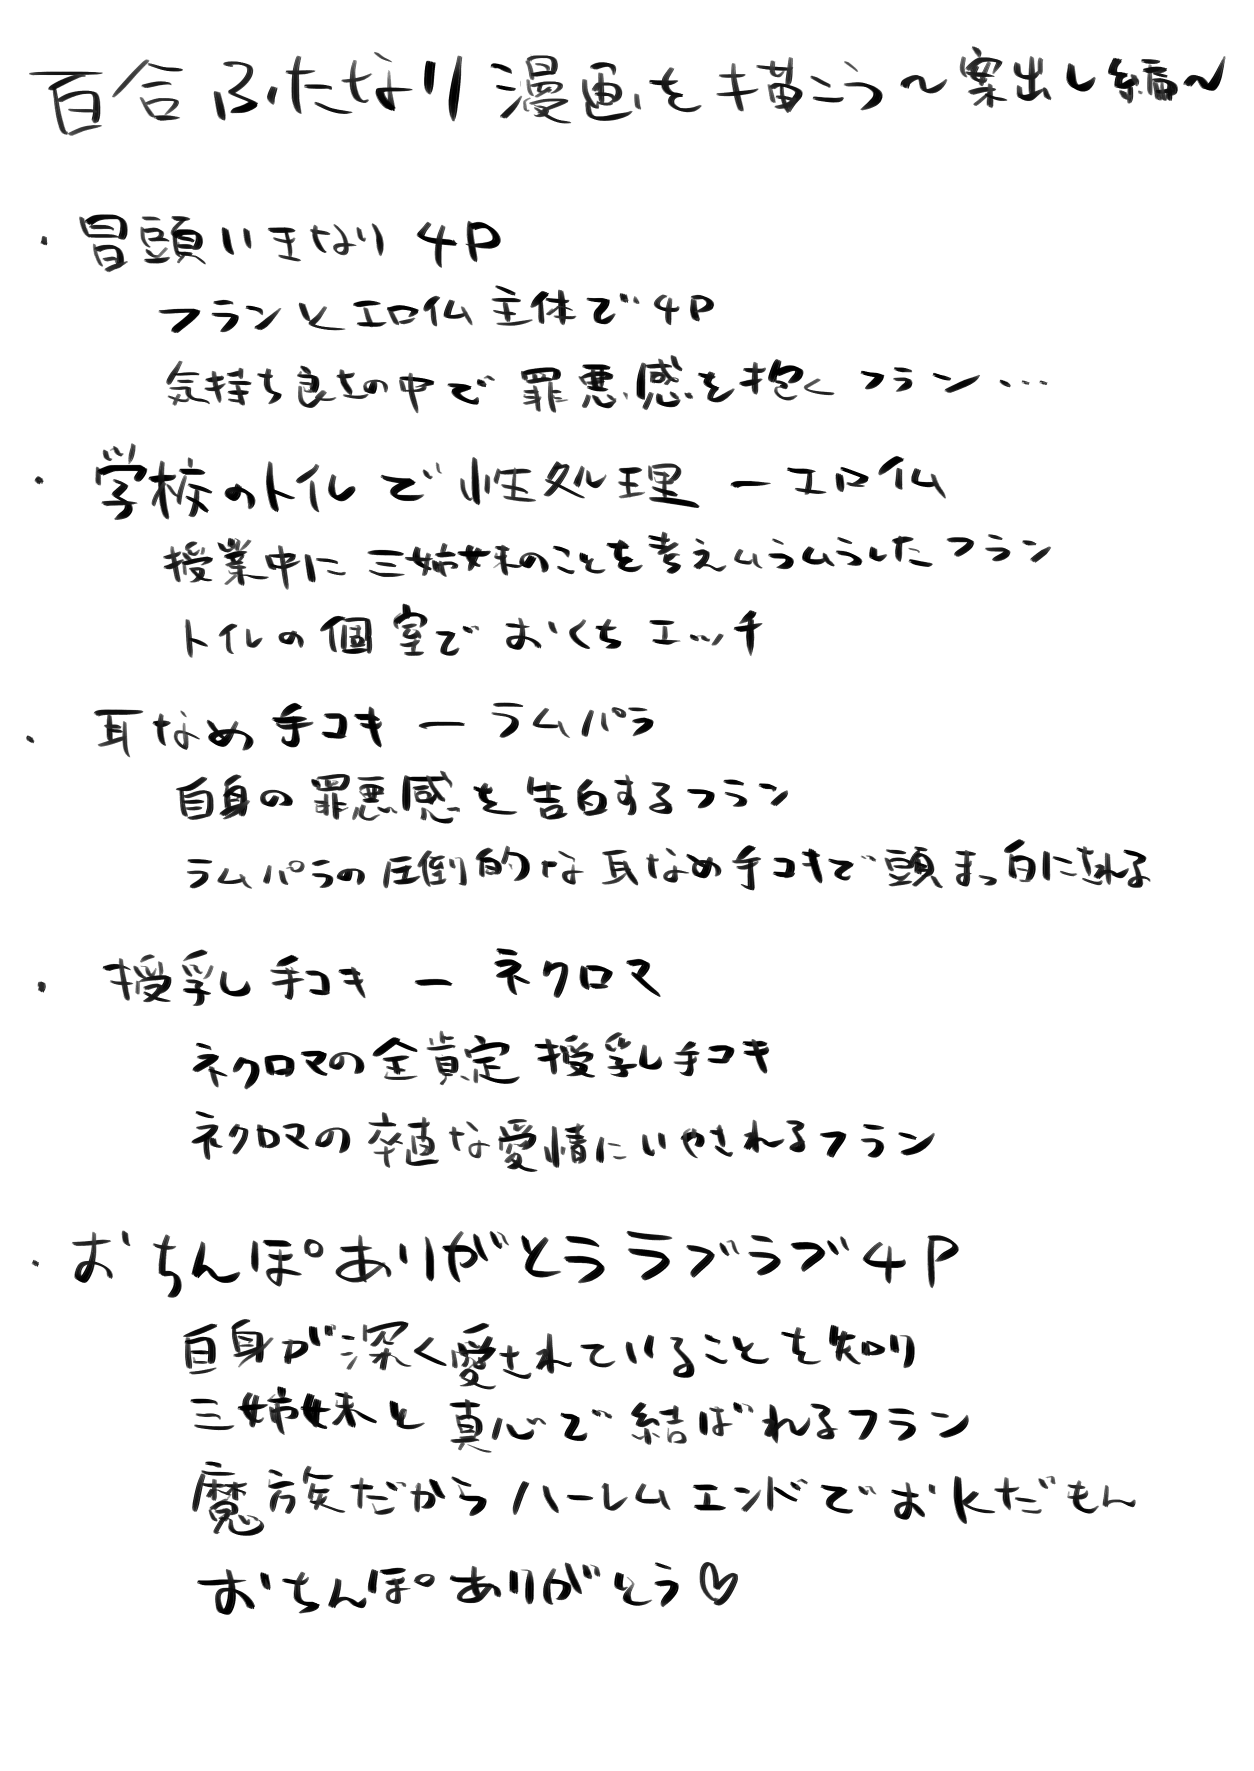 百合ふたなり漫画を描こう～案出し編～
・冒頭いきなり4P
フランとエロ仏主体で4P
気持ち良さの中で罪悪感を抱くフラン…
・学校のトイレで性処理ーエロ仏
授業中に三姉妹のことを考えムラムラしたフラン
トイレの個室でおくちエッチ
・耳なめ手コキーラムパラ
自身の罪悪感を告白するフラン
ラムパラの圧倒的な耳なめ手コキで頭まっ白にされる
・授乳し手コキーネクロマ
ネクロマの全肯定授乳し手コキ
ネクロマの率直な愛情にいやされるフラン
・おちんぽありがとうラブラブ4P
自身が深く愛されていることを知り
三姉妹と真心で結ばれるフラン
魔族だからハーレムエンドでおkだもん
おちんぽありがとう♡